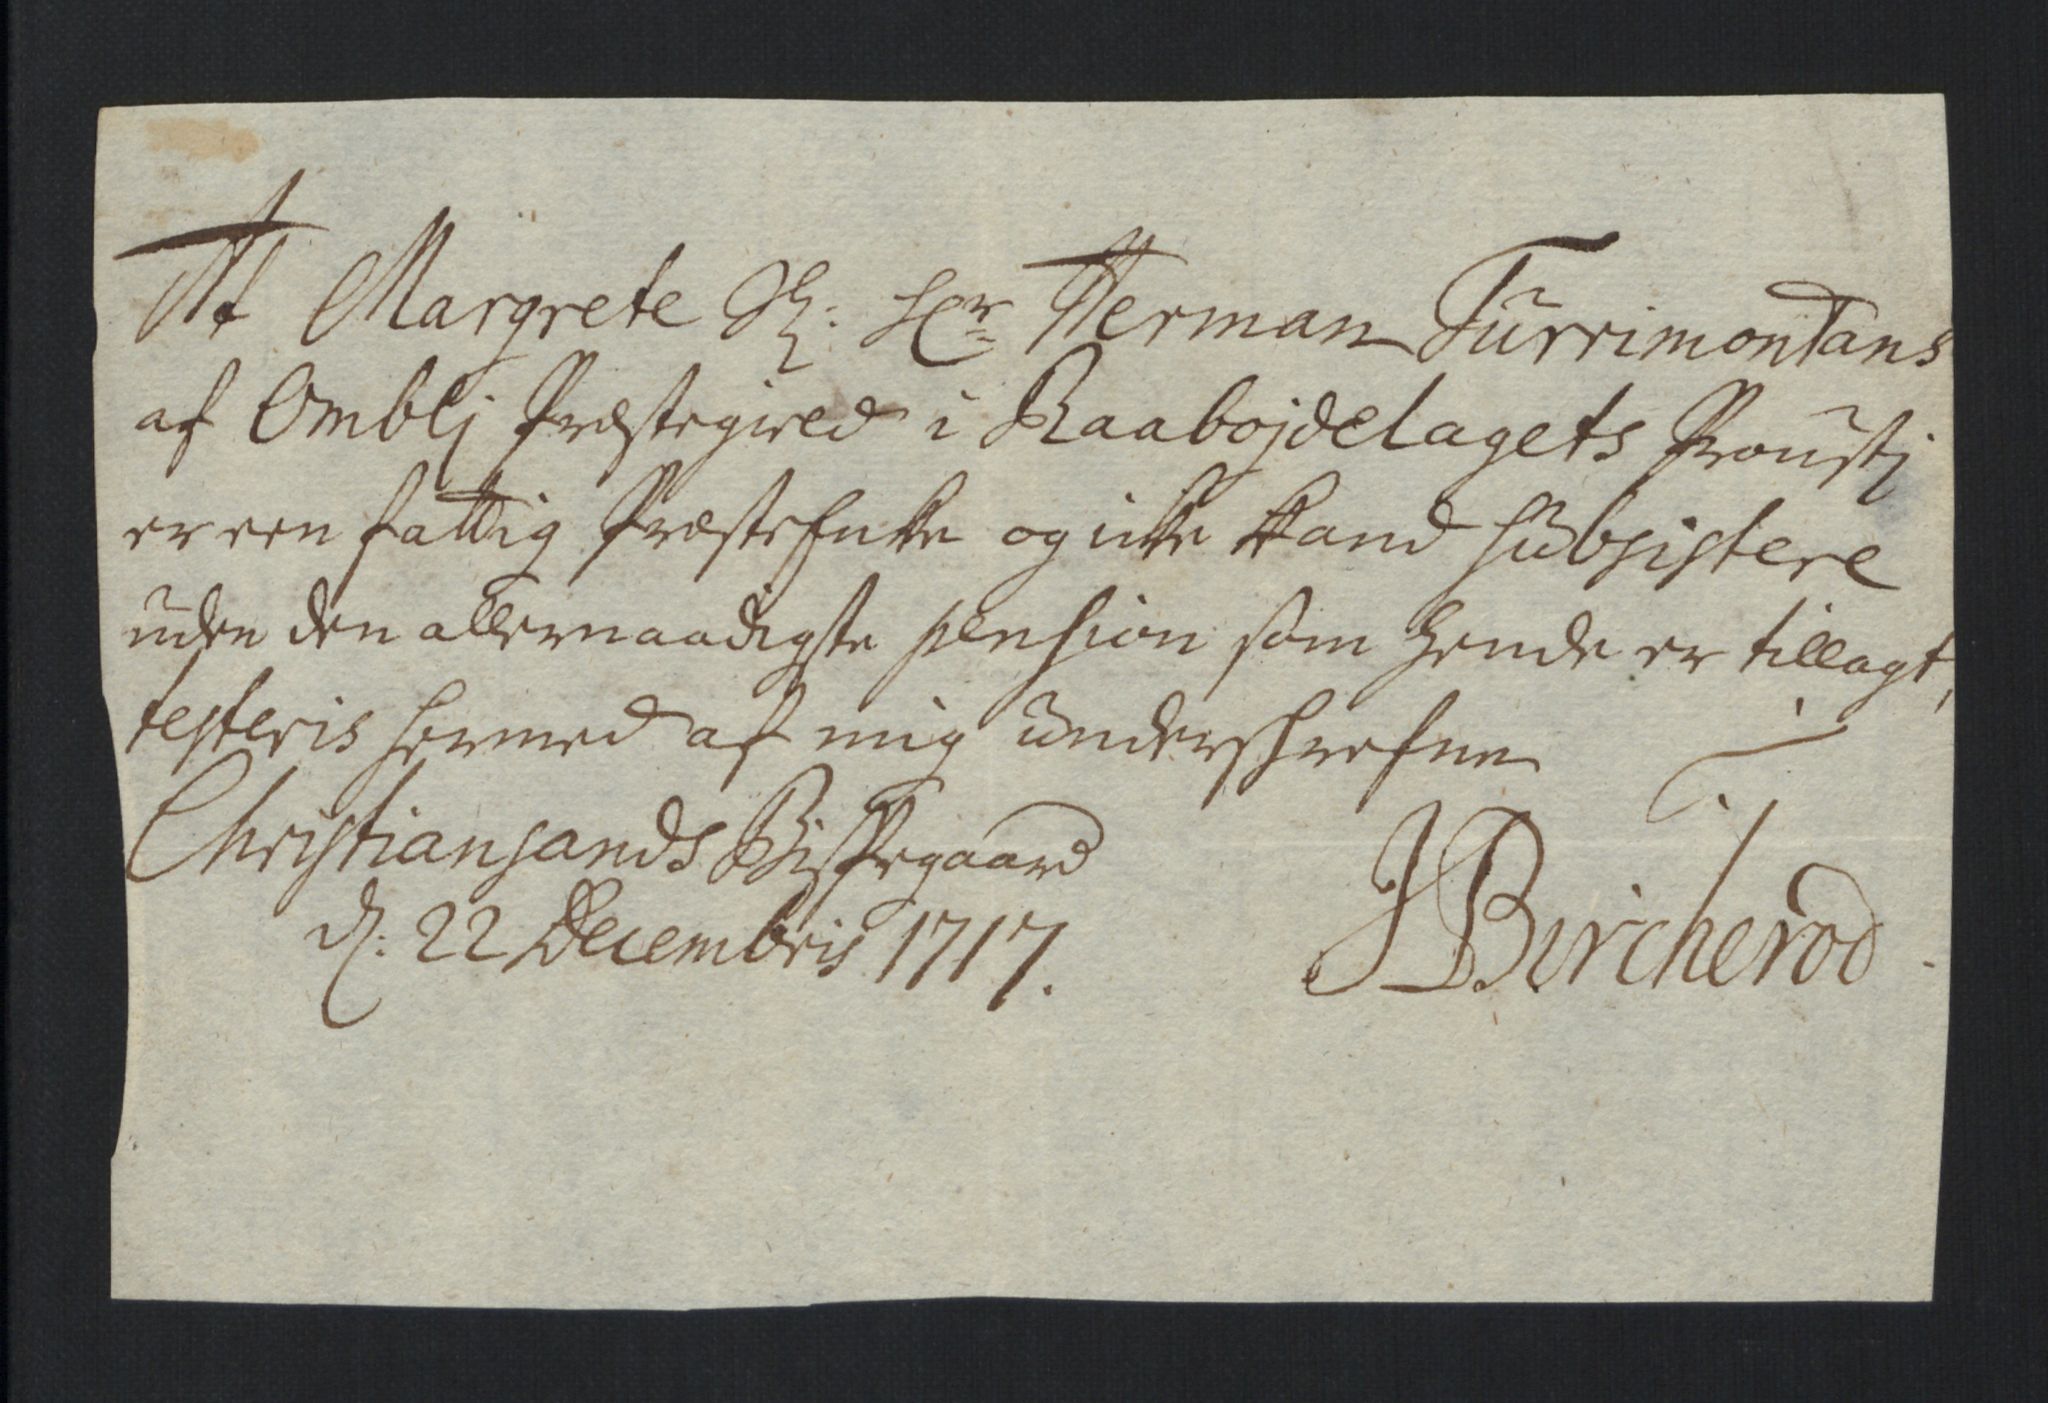 At Margrete Sl: Hr: Herman Turrimontans
af Omblj Præstegield i Raabojdelagets Proustj
er een fattig Præste Encke og icke kand subsistere
uden den allernaadigste pension som hende er tillagt,
testeris hermed af mig underschrefne
Christiansands Bispegaard
d: 22 Decembris 1717.
J Bircherod